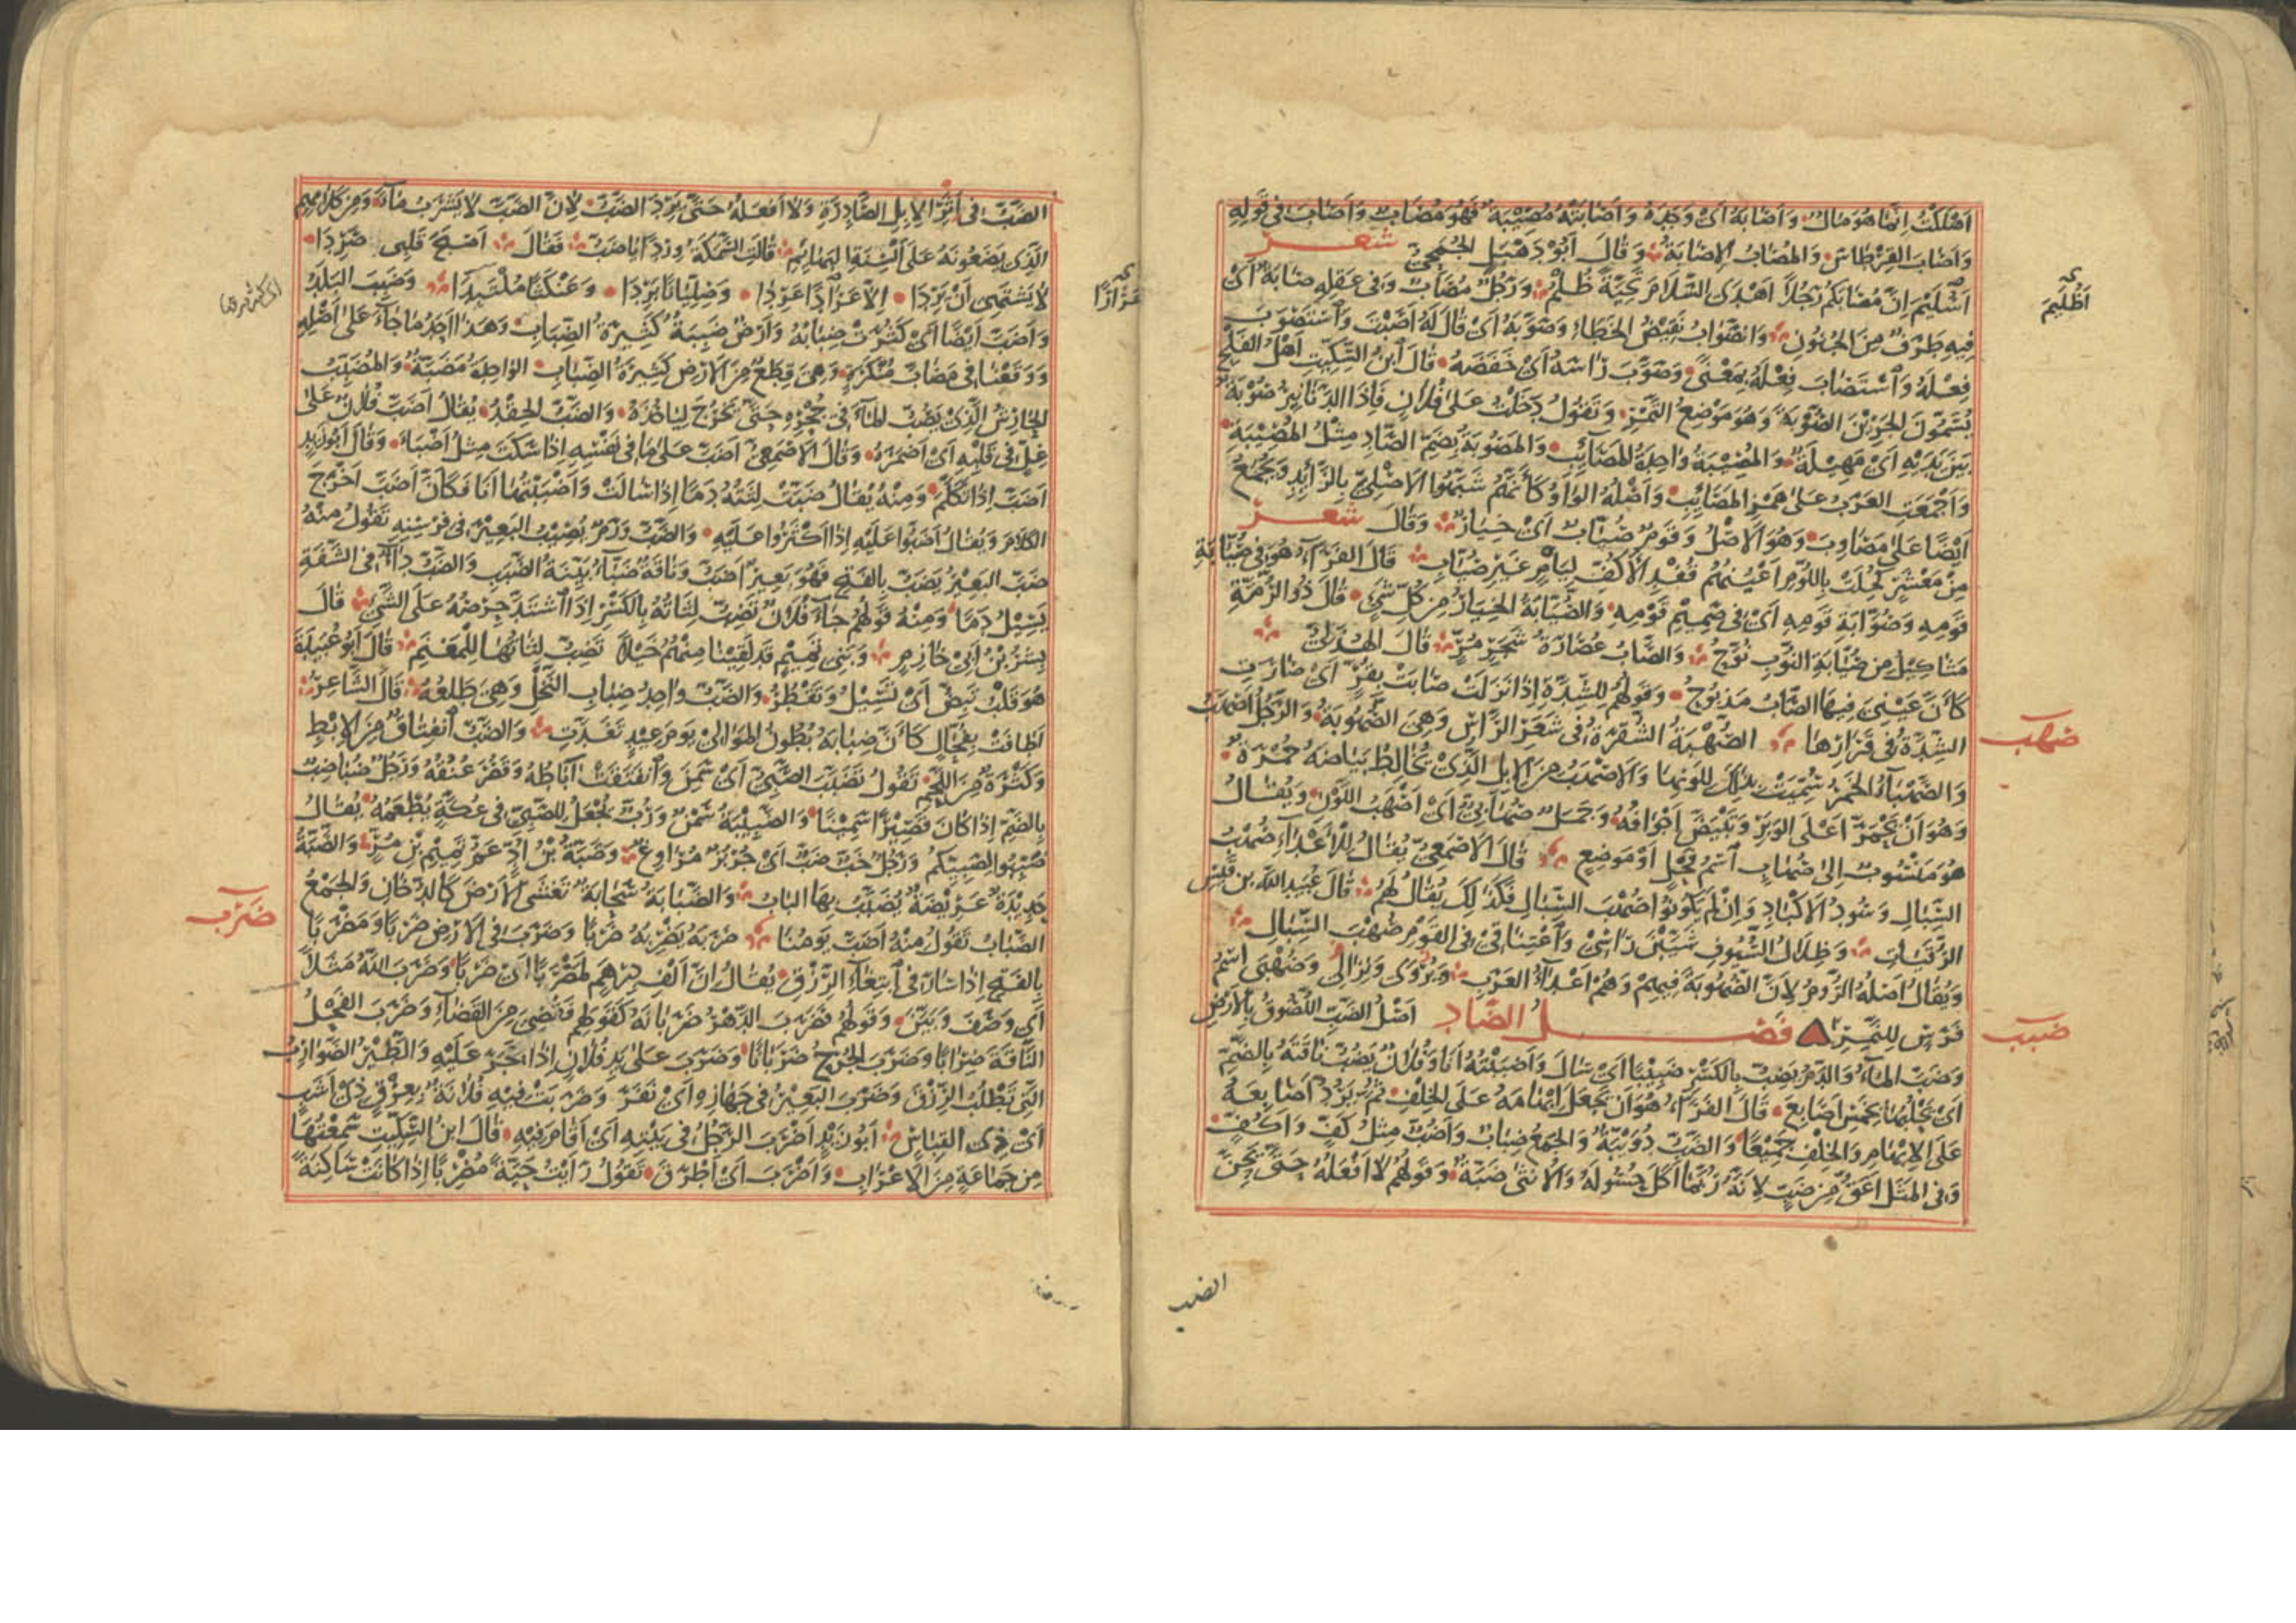 اَهْلَكْتُ اِنَّمَا هُوَ مَالٌ وَاَصَابَهُ اَىْ وَجَدَهُ وَاَصَابَتْهُ مُصِيْبَةٌ فَهُوَ مُصَابٌ وَاَصَابَ فِى قَوْلِهِ
وَاَصَابَ القِرْطَاسَ وَالمُصَابُ الاِصَابَةُ وَقَالَ اَبُوْ دَهْبَلِ الجُمَحِىّ شعر
اَسُلَيْمَ اِنَّ مُصَابَكُمْ رَجُلاً اَهْدَى السَّلَامَ تَحِيَّةً ظُلْمٌ وَرَجُلٌ مُصَابٌ وَفى عَقْلِهِ صَابَةٌ اَىْ
اَظُلَيْمَ
فِيْهِ طَرَفٌ مِنَ الجُنُوْنِ وَالصَّوَابُ نَقِيْضُ الخَطَاءِ وَصَوَّبَهُ اَىْ قَالَ لَهُ اَصَبْتَ وَاسْتَصْوَبَ
فِعْلَهُ وَاسْتَصَابَ فِعْلَهُ بِمَعْنًى وَصَوَّبَ رَاسَهُ اَىْ خَفَضَهُ قَالَ ابْنُ السِّكِّيْت اَهْلُ الفَلْجِ
يُسَمُّوْنَ الجَرِيْنَ الصُّوْبَةَ وَهُوَ مَوْضِعُ التَّمْرِ وَتَقُوْلُ دَخَلْتُ عَلَى فُلَانٍ فَاِذَا الدَّنَانِيْرُ صُوْبَةٌ
بَيْنَ يَدَيْهِ اَىْ مَهِيْلَةٌ وَالمُصِيْبَةُ وَاحِدَةُ المَصَائِبِ وَالمَصُوْبَةُ بِضَمِّ الصَّادِ مِثْلُ المُصِيْبَةِ
وَاَجْمَعَتِ العَرَبُ عَلَى هَمْزِ المَصَائِبِ وَاَصْلُهُ الوَاوُ كَاَنَّهُمْ شَبَّهُوْا الاَصْلِىَّ بِالزَّائِدِ وَيُجْمَعُ
اَيْضًا عَلَى مَصَاوِبَ وَهُوَ الاَصْلُ وَقَوْمٌ صُيَّابٌ اَىْ خِيَارٌ وَقَالَ شعر
مِنْ مَعْشَرٍ كُحِلَتْ بِاللُّؤْمِ اَعْيُنُهُمْ قُفْدِ الاَكُفِّ لِيَامٍ غَيْرِ صُيَّابِ قَالَ الفَرَّاءُ هُوَ فِى صُيَّابَةِ
قَوْمِهِ وَصُوَّابَةِ قَوْمِهِ اَىْ فِى صَمِيْمِ قَوْمِهِ وَالصُّيَّابَةُ الخِيَارُ مِنْ كُلِّ شَىْءٍ قَالَ ذُو الرُّمَّةِ
مَثَاكِيْلُ مِنْ صُيَّابَةِ النُّوْبِ نُوَّحُ وَالصَّابُ عُصَارَةُ شَجَرٍ مُرٍّ قَالَ الهُذَلِىُّ
كَاَنَّ عَيْنِىَ فِيْهَا الصَّابُ مَذْبُوْحُ وَقَوْلُهُمْ لِلشِّدَّةِ اِذَا نَزَلَتْ صَابَتْ بِقُرٍّ اَىْ صَارَتِ
الشِّدَّةُ فِى قَرَارِهَا الصُّهْبَةُ الشُّقْرَةُ فِى شَعَرِ الرَّاسِ وَهِىَ الصُّهُوْبَةُ وَالرَّجُلُ اَصْهَبُ
صهب
وَالصَّهْبَآءُ الخَمْرُ سُمِّيَتْ بِذَلِكَ لِلَوْنِهَا وَالاَصْهَبُ مِنَ الاِبِلِ الَّذِىْ يُخَالِطُ بَيَاضَهُ حُمْرَةٌ
وَهُوَ اَنْ يَحْمَرَّ اَعْلَى الوَبَرِ وَتَبْيَضَّ اَجْوَافُهُ وَجَمَلٌ صُهَابِىٌّ اَىْ اَصْهَبُ اللَّوْنِ وَيُقَالُ
هُوَ مَنْسُوْبٌ اِلَى صُهَابٍ اسْمُ فَحْلٍ اَوْ مَوْضِعٍ قَالَ الاَصْمَعِىُّ يُقَالُ لِلاَعْدَاءِ صُهْبُ
السِّبَالِ وَسُوْدُ الاَكْبَادِ وَاِنْ لَمْ يَكُوْنُوْا صُهْبَ السِّبَالِ فَكَذَلِكَ يُقَالُ لَهُمْ قَالَ عُبَيْدُ اللهِ بنُ قَيْسِ
الرُّقَيَّاتِ وَظِلَالُ السُّيُوْفِ شَيَّبْنَ رَاسِىْ وَاعْتِنَاقِىْ فِى القَوْمِ صُهْبَ السِّبَالِ
وَيُقَالُ اَصْلُهُ الرُّوْمُ لِاَنَّ الصُّهُوْبَةَ فِيْهِمْ وَهُمْ اَعْدَاءُ العَرَبِ وَيُرْوَى وَنِزَالِى وَصُهْبَى اسْمُ
فَرَسٍ لِلنَّمِرِ فصـــل الضَّاد اَصْلُ الضَّبِّ اللُّصُوْقُ بِالاَرْضِ
ضبب
وَضَبَّ المَاءُ وَالدَّمُ يَضِبُّ بِالكَسْرِ ضَبِيْبًا اَىْ سَالَ وَاَضْبَبْتُهُ اَنَا وَفُلَانٌ يَضُبُّ نَاقَتَهُ بِالضَّمِّ
اَىْ يَحْلُبُهَا بِخَمْسِ اَصَابِعَ قَالَ الفَرَّاءُ هُوَ اَنْ يَجْعَلَ اِبْهَامَهُ عَلَى الخِلْفِ ثُمَّ يَرُدَّ اَصَابِعَهُ
عَلَى الاِبْهَامِ وَالخِلْفِ جَمِيْعًا وَالضَّبُّ دُوَيْبَّةٌ وَالجَمْعُ ضِبَابٌ وَاَضُبٌّ مِثْلُ كَفٍّ وَاَكُفٍّ
وَفى المَثَلِ اَعَقُّ مِنْ ضَبٍّ لِاَنَّهُ رُبَّمَا اَكَلَ حُسُوْلَهُ وَالاُنْثَى ضَبَّةٌ وَقَوْلُهُمْ لَا اَفْعَلُهُ حَتَّى يَحِنَّ
الضب
الضَّبُّ فِى اَثَرِ الاِبِلِ الصَّادِرَةِ وَلَا اَفْعَلُهُ حَتَّى يَرِدَ الضَّبُّ لِاَنَّ الضَّبَّ لَا يَشْرَبُ مَاءً وَمِنْ كَلَامِهِمْ
الَّذِى يَضَعُوْنَهُ عَلَى اَلْسِنَةِ البَهَائِمِ قَالَتِ السَّمَكَةُ وِرْدًا يَا ضَبُّ فَقَالَ اَصْبَحَ قَلْبِى صَرِدَا
لَا يَشْتَهِى اَنْ يَرِدَا اِلَّا عَرَادًا عَرِدَا وَصِلِّيَانًا بَرِدَا وَعَنْكَثًا مُلْتَبِدَا وَضَبِبَ البَلَدُ
وَاَضَبَّ اَيْضًا اَىْ كَثُرَتْ ضِبَابُهُ وَاَرْضٌ ضَبِبَةٌ كَثِيْرَةُ الضِّبَابِ وَهَذَا اَحَدُ مَا جَاءَ عَلَى اَصْلِهِ
وَوَقَعْنَا فِى مَضَابَّ مُنْكَرَةٍ وَهِىَ قِطَعٌ مِنَ الاَرْضِ كَثِيْرَةُ الضِّبَابِ الوَاحِدَةُ مَضَبَّةٌ وَالمُضَبِّبُ
الحَارِشُ الَّذِىْ يَصُبُّ المَاءَ فِى جُحْرِهِ حَتَّى يَخْرُجَ لِيَاخُذَهُ وَالضَّبُّ الحِقْدُ يُقَالُ اَضَبَّ فُلَانٌ عَلَى
غِلٍّ فِى قَلْبِهِ اَىْ اَضْمَرَهُ وَقَالَ الاَصْمَعِىُّ اَضَبَّ عَلَى مَا فِى نَفْسِهِ اِذَا سَكَتَ مِثْلُ اَضْبَاَ وَقَالَ اَبُوْ زَيْدٍ
اَضَبَّ اِذَا تَكَلَّمَ وَمِنْهُ يُقَالُ ضَبَّتْ لِثَتُهُ دَمًا اِذَا سَالَتْ وَاَضْبَبْتُهَا اَنَا فَكَاَنَّ اَضَبَّ اَخْرَجَ
الكَلَامَ وَيُقَالُ اَضَبُّوْا عَلَيْهِ اِذَا اَكْثَرُوْا عَلَيْهِ وَالضَّبُّ وَرَمٌ يُصِيْبُ البَعِيْرَ فِى فِرْسِنِهِ تَقُوْلُ مِنْهُ
ضَبَّ البَعِيْرُ يَضَبُّ بِالفَتْحِ فَهُوَ بَعِيْرٌ اَضَبُّ وَنَاقَةٌ ضَبَّاءُ بَيِّنَةُ الضَّبَبِ وَالضَّبُّ دَاءٌ فِى الشَّفَةِ
يَسِيْلُ دَمًا وَمِنْهُ قَوْلُهُمْ جَاءَ فُلَانٌ تَضِبُّ لِثَاتُهُ بِالكَسْرِ اِذَا اشْتَدَّ حِرْصُهُ عَلَى الشَّىْءِ قَالَ
بِشْرُ بْنُ اَبِىْ خَازِمٍ وَبَنِى تَمِيْمٍ قَدْ لَقِيْنَا مِنْهُمُ خَيْلًا تَضِبُّ لِثَاتُهَا لِلْمَغْنَمِ قَالَ اَبُوْ عُبَيْدَةَ
هُوَ قَلْبُ تَبِضُّ اَىْ تَسِيْلُ وَتَقْطُرُ وَالضَّبُّ وَاحِدُ ضِبَابِ النَّخْلِ وَهِىَ طَلْعُهُ قَالَ الشَّاعِرُ
اَطَافَتْ بِفُحَّالٍ كَاَنَّ ضِبَابَهُ بُطُوْنُ المَوَالِىْ يَوْمَ عِيْدٍ تَغَدَّتِ وَالضَّبُّ انْفِتَاقٌ مِنَ الاِبْطِ
وَكَثْرَةٌ مِنَ اللَّحْمِ تَقُوْلُ تَضَبَّبَ الصَّبِىُّ اَىْ سَمِنَ وَانْفَتَقَتْ آبَاطُهُ وَقَصُرَ عُنُقُهُ وَرَجُلٌ ضُبَاضِبٌ
بِالضَّمِّ اِذَا كَانَ قَصِيْرًا سَمِيْنًا وَالضَّبِيْبَةُ سَمْنٌ وَرُبٌّ يُجْعَلُ لِلصَّبِىِّ فِى عُكَّةٍ يُطْعَمُهُ يُقَالُ
ضَبِّبُوا لِصَبِيِّكُمْ وَرَجُلٌ خَبٌّ ضَبٌّ اَىْ جُرْبُزٌ مُرَاوِغٌ وَضَبَّةُ بْنُ اُدٍّ عَمُّ تَمِيْمِ بْنِ مُرٍّ وَالضَّبَّةُ
حَدِيْدَةٌ عَرِيْضَةٌ يُضَبَّبُ بِهَا البَابُ وَالضَّبَابَةُ سَحَابَةٌ تَغْشَى الاَرْضَ كَالدُّخَانِ وَالجَمْعُ
الضَّبَابُ تَقُوْلُ مِنْهُ اَضَبَّ يَوْمُنَا ضَرَبَهُ يَضْرِبُهُ ضَرْبًا وَضَرَبَ فِى الاَرْضِ ضَرْبًا وَمَضْرَبًا
ضرب
بِالفَتْحِ اِذَا سَارَ فِى ابْتِغَاءِ الرِّزْقِ يُقَالُ اِنَّ اَلْفِ دِرْهَمٍ لَمَضْرَبًا اَىْ ضَرْبًا وَضَرَبَ اللهُ مَثَلاً
اَىْ وَصَفَ وَبَيَّنَ وَقَوْلُهُمْ فَضَرَبَ الدَّهْرُ ضَرَبَانَهُ كَقَوْلِهِمْ فَقَضَى مِنَ القَضَاءِ وَضَرَبَ الفَحْلُ
النَّاقَةَ ضِرَابًا وَضَرَبَ الجُرْحُ ضَرَبَانًا وَضَرَبَ عَلَى يَدِ فُلَانٍ اِذَا حَجَرَ عَلَيْهِ وَالطَّيْرُ الضَّوَارِبُ
الَّتِى تَطْلُبُ الرِّزْقَ وَضَرَبَ البَعِيْرُ فِى جَهَازِهِ اَىْ نَفَرَ وَضَرَبَتْ فِيْهِ فُلَانَةُ بِعِرْقٍ ذِىْ اَشَبٍ
اَىْ اَبُوْ زَيْدٍ اَضْرَبَ الرَّجُلُ فِى بَيْتِهِ اَىْ اَقَامَ فِيْهِ قَالَ ابْنُ السِّكِّيْتِ سَمِعْتُهَا
مِنْ جَمَاعَةٍ مِنَ الاَعْرَابِ وَاَضْرَبَ اَىْ اَطْرَقَ تَقُوْلُ رَاَيْتُ حَيَّةً مُضْرِبًا اِذَا كَانَتْ سَاكِنَةً